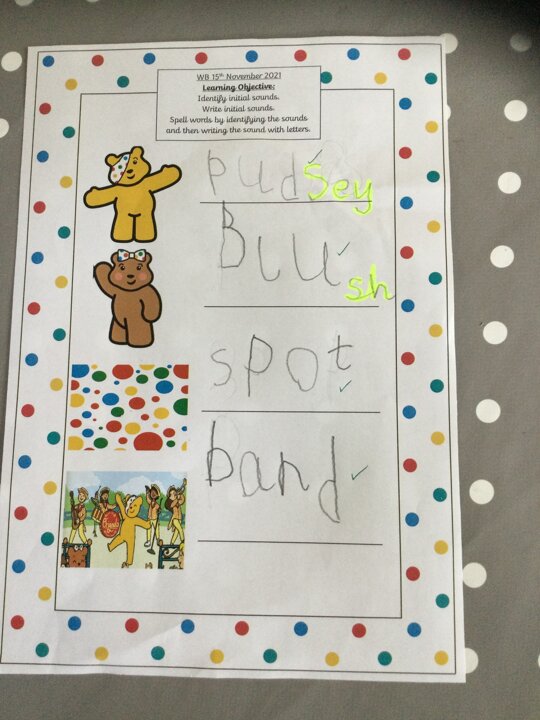 WB 15th November 2021
Learning Objective:
Identify initial sounds.
Write initial sounds.
Spell words by identifying the sounds
and then writing the sound with letters.
pudsey
Blush
spot
band